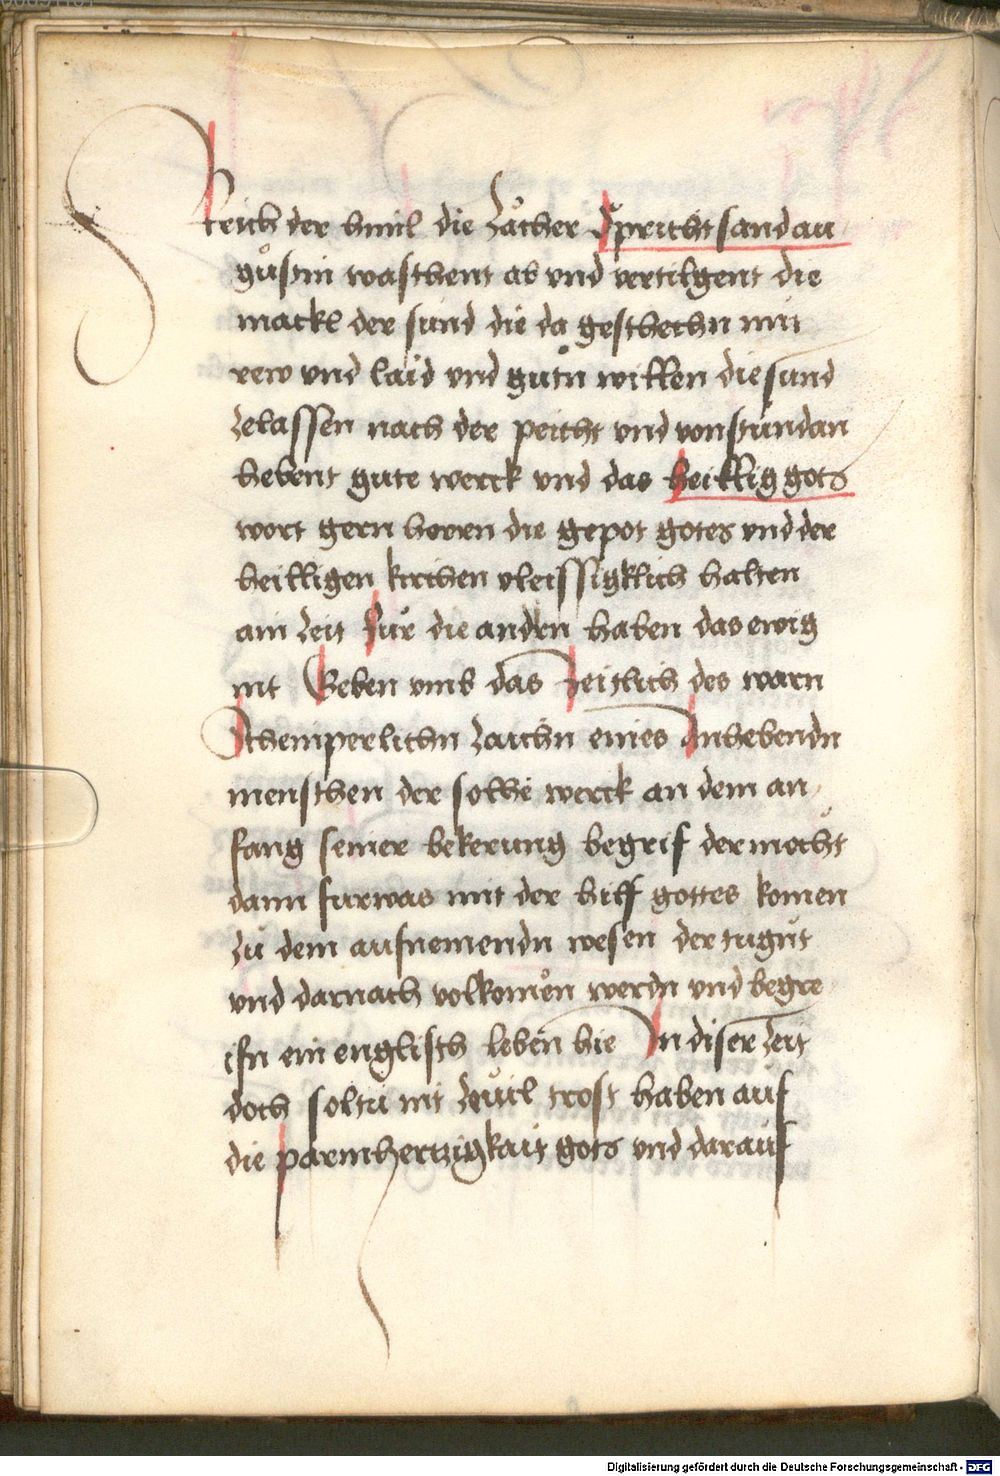 Reich der himl die Zächer Spricht sand au
gustin waschent ab vnd vertilgent die
mackl der sund die da geschechn mit
rew vnd laid vnd gůtn willen die sund
zelassen nach der peicht vnd von stundan
hebent gute werck vnd das heillig gots
wort gern horrn die gepot gotes vnd der
heilligen kirchen vleissigklich halten
ain zeit fur die andrn haben das ewig
mt Geben vmb das Zeitlich des warn
Schemperlichn zaichn eines Anhebendn
menschen der solhe werck an dem an
fang seiner bekerung begrif der mocht
dann furwas mit der hilf gottes komen
zů dem aufnemendn wesen der tugūt
vnd darnach volkomen werdn vnd begre
ifn ein englisch leben hie In diser zeit
doch soltu nit zuuil trost haben auf
die parmhertzigkait gots vnd darauf
Digitalisierung gefördert durch die Deutsche Forschungsgemeinschaft - DFG